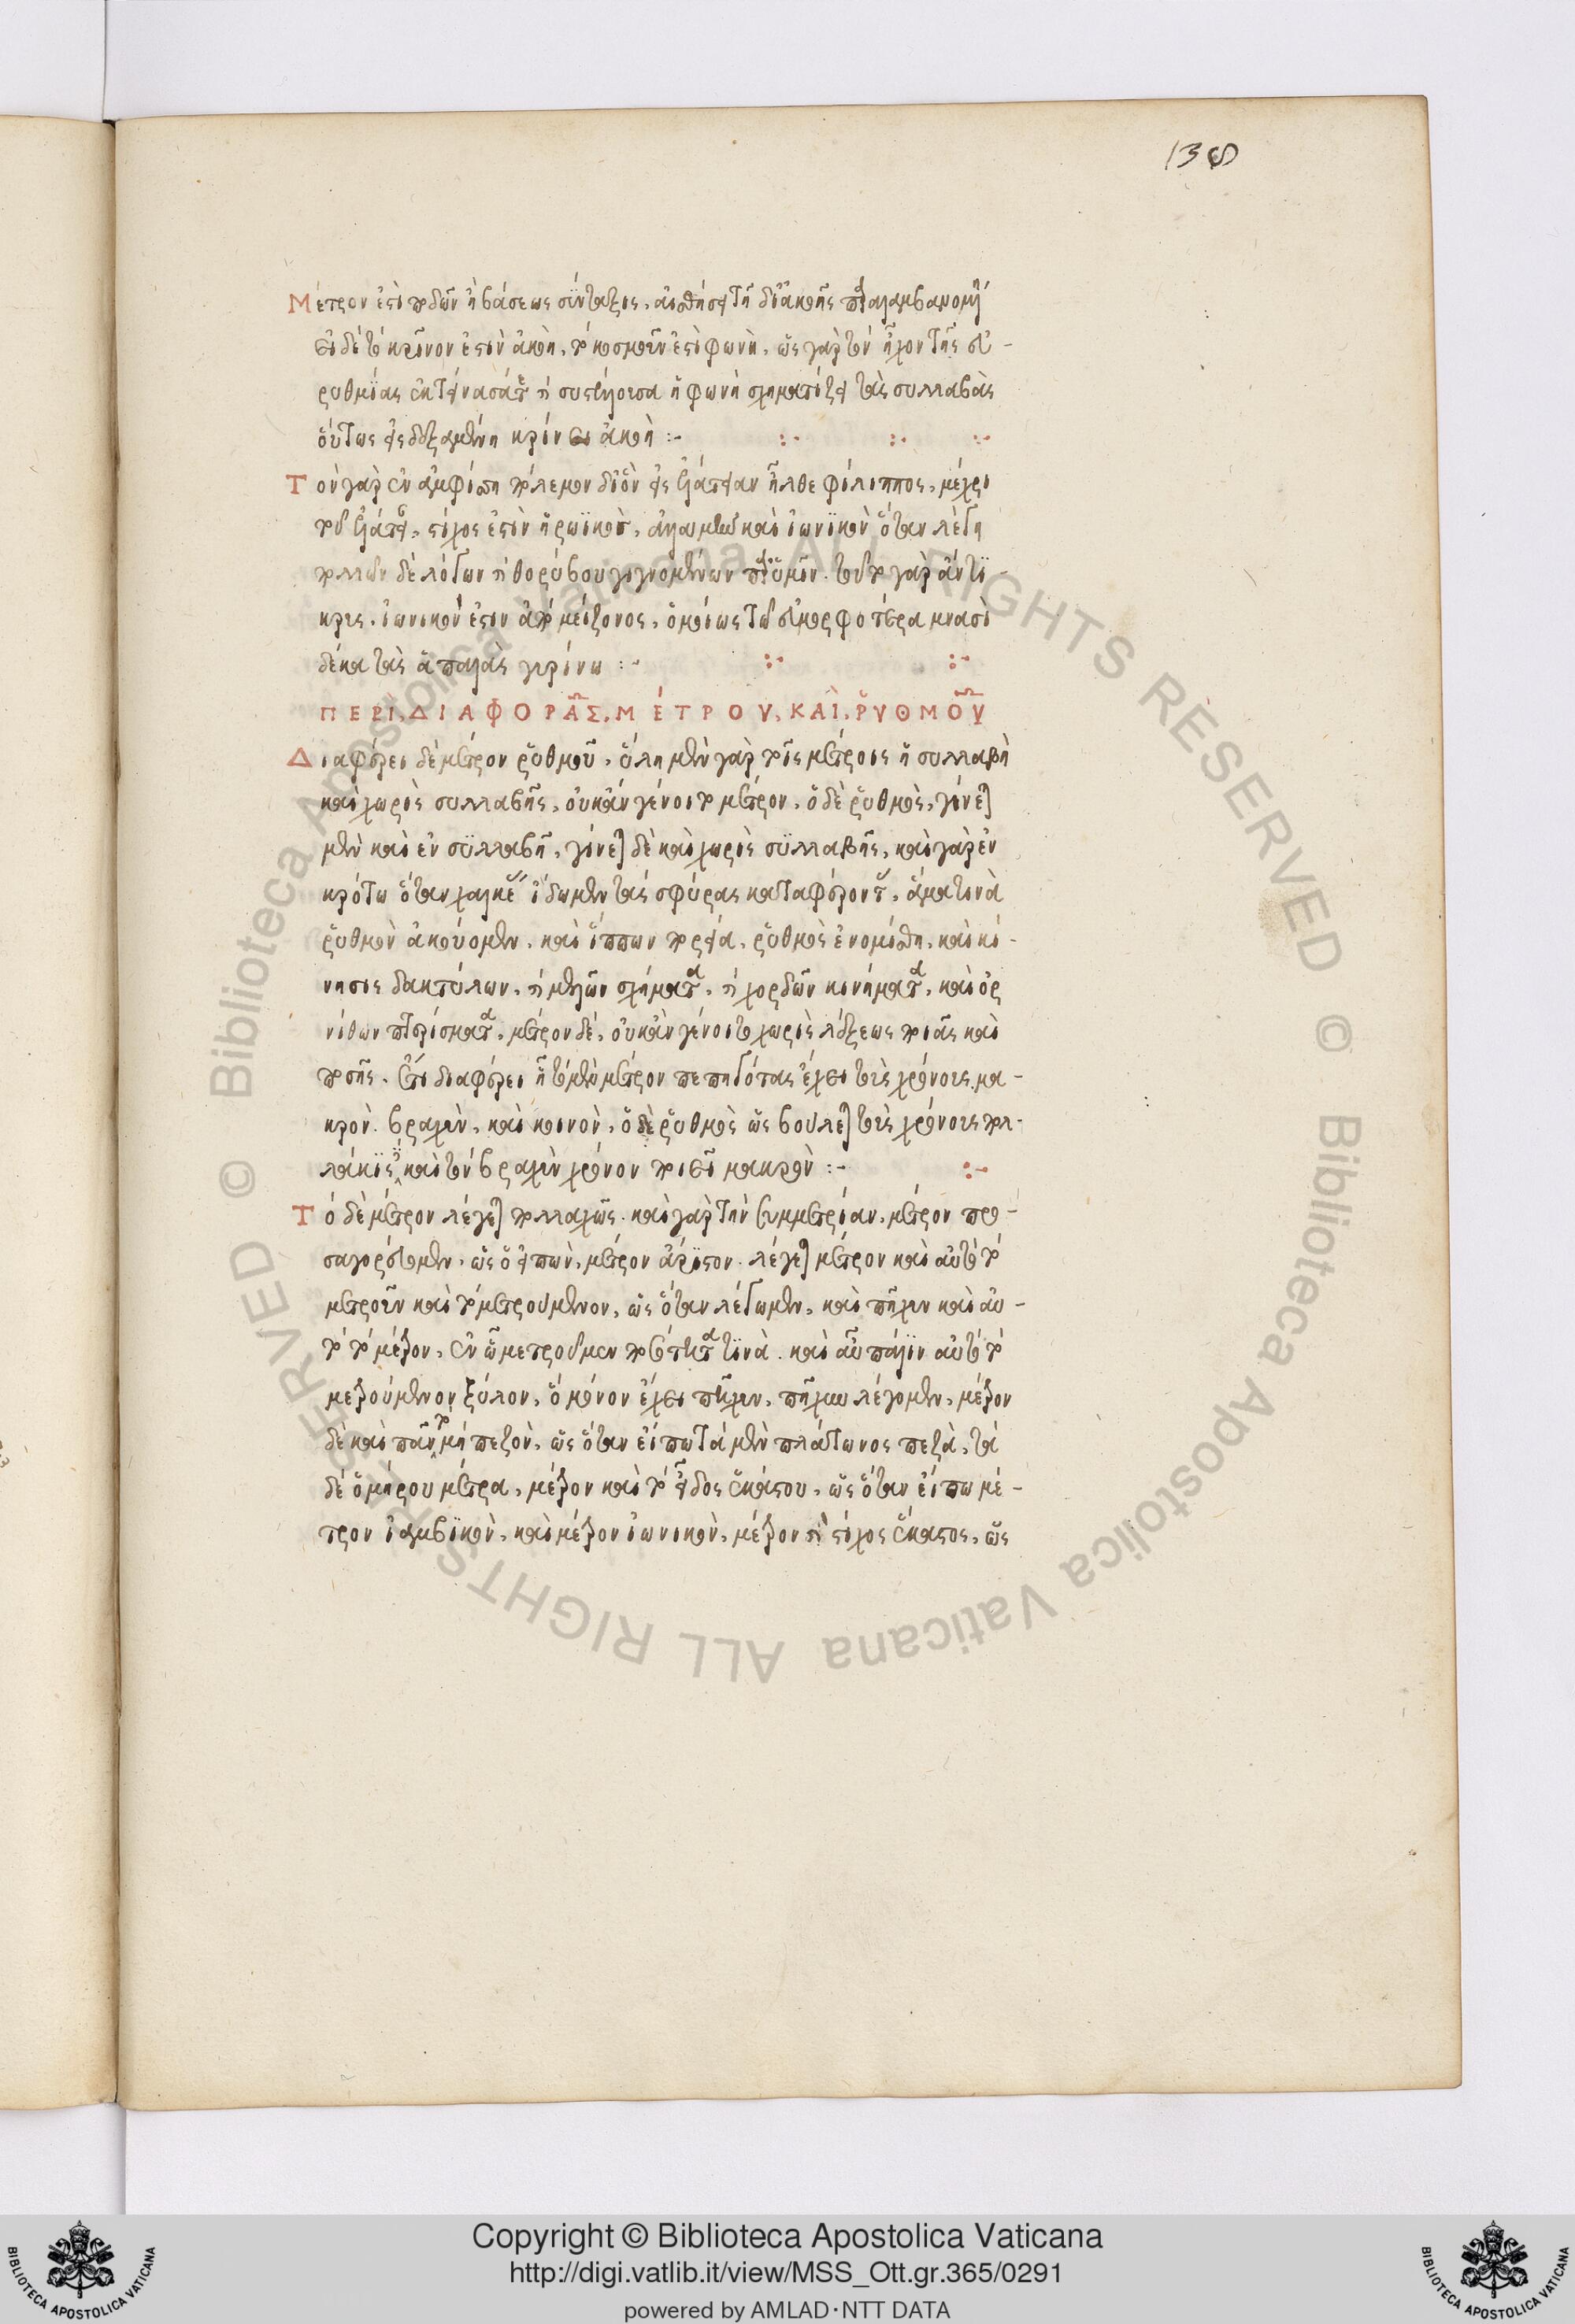 138
Μέτρον ἐστὶ ποδῶν ἢ βάσεως σύνταξις, αἰσθήσει τῆ δι' ἀκοῆς παραλαμβανομένη
εἰ δὲ τὸ κρῖνον ἐστὶν ἀκοὴ, τὸ κοσμοῦν ἐστὶ φωνὴ, ὡς γὰρ τὸν ἦχον τῆς εὐ-
ρυθμίας ἡ φωνὴ σχηματίζει τὰς συλλαβὰς
οὕτως κρίνει ἀκοὴ :-
Τὸν γὰρ ἐν ἀμφι πόλεμον δι' ὃν εἰς ἐλάτειαν ἦλθε φίλιππος, μέχρι
τοῦ στίχος ἐστὶν ἡρωϊκὸς, καὶ ἰωνικὸν ὅταν λέγη
πολλῶν δὲ λόγων καὶ θορύβου γιγνομένων παρ' ὑμῖν. τοῦτο γὰρ ἄντι-
κρυς, ἰωνικόν ἐστιν ἀπὸ μείζονος, ὁμοίως τῶ εὐμορφοτέρα μνασι
δέκα τᾶς ἁπαλᾶς γυρίνω :-
ΠΕΡΙ, ΔΙΑΦΟΡΑ͂Σ, ΜΈΤΡΟΥ, ΚΑῚ, ῬΥΘΜΟΥ͂
Διαφέρει δὲ μέτρον ῥυθμοῦ, ὕλη μὲν γὰρ τοῖς μέτροις ἡ συλλαβὴ
καὶ χωρὶς συλλαβῆς, οὐκ ἂν γένοιτο μέτρον, ὁ δὲ ῥυθμὸς, γίνεται
μὲν καὶ ἐν συλλαβῆ, γίνεται δὲ καὶ χωρὶς συλλαβῆς, καὶ γὰρ ἐν
κρότω ὅταν χαλκέας ἴδωμεν τὰς σφύρας καταφέροντας, ἅμα τινὰ
ῥυθμὸν ἀκούομεν, καὶ ἵππων πορεία, ῥυθμὸς ἐνομίσθη, καὶ κί-
νησις δακτύλων, καὶ μελῶν σχήματα, καὶ χορδῶν κινήματα, καὶ ὀρ
νίθων πτερίσματα, μέτρον δὲ, οὐκ ἂν γένοιτο χωρὶς λέξεως ποιᾶς καὶ
ποσῆς. ἔτι διαφέρει ἧ τὸ μὲν μέτρον πεπηγότας ἔχει τοὺς χρόνους. μα-
κρὸν. βραχὺν, καὶ κοινὸν, ὁ δὲ ῥυθμὸς ὡς βούλεται τοὺς χρόνους πολ-
λάκις καὶ τὸν βραχὺν χρόνον ποιεῖ μακρὸν :-
Τὸ δὲ μέτρον λέγεται πολλαχῶς. καὶ γὰρ τὴν συμμετρίαν, μέτρον προ-
σαγορεύομεν, ὡς ὁ εἰπὼν, μέτρον ἄριστον. λέγεται μέτρον καὶ αὐτὸ τὸ
μετροῦν καὶ τὸ μετρούμενον, ὡς ὅταν λέγωμεν, καὶ πῆχυν καὶ αὐ-
τὸ τὸ μέτρον, ἐν ὧ μετροῦμεν τινὰ. καὶ αὖ πάλιν αὐτὸ τὸ
μετρούμενον ξύλον, ὃ μόνον ἔχει πῆχυν, πῆχυν λέγομεν, μέτρον
δὲ καὶ πᾶν τὸ μὴ πεζὸν, ὡς ὅταν εἴπω τὰ μὲν πλάτωνος πεζὰ, τὰ
δὲ ὁμήρου μέτρα, μέτρον καὶ τὸ εἶδος ἑκάστου, ὡς ὅταν εἴπω μέ-
τρον ἰαμβικὸν, καὶ μέτρον ἰωνικὸν, μέτρον καὶ στίχος ἕκαστος, ὡς
Copyright © Biblioteca Apostolica Vaticana
http://digi.vatlib.it/view/MSS_Ott.gr.365/0291
powered by AMLAD·NTT DATA
BIBLIOTECA APOSTOLICA VATICANA
BIBLIOTECA APOSTOLICA VATICANA
© Biblioteca Apostolica Vaticana ALL RIGHTS RESERVED © Biblioteca Apostolica Vaticana ALL RIGHTS RESERVED